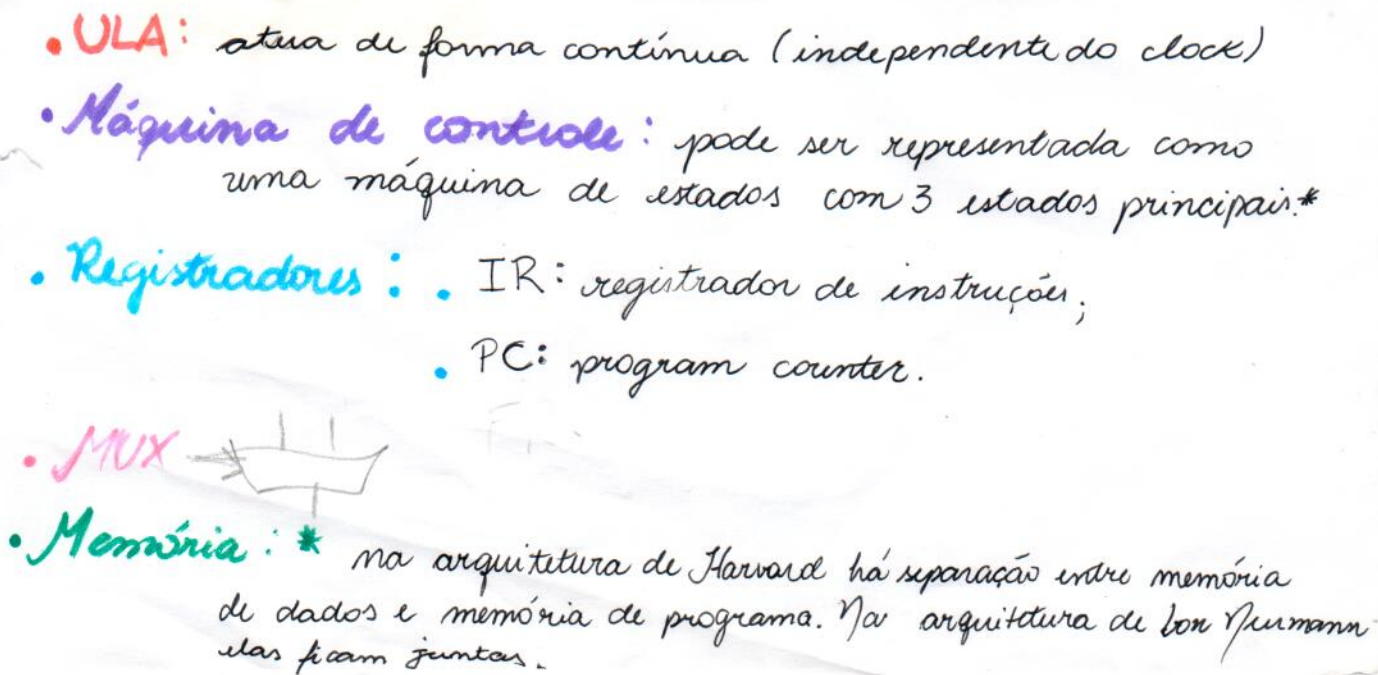 • ULA: atua de forma contínua (independente do clock)
• Máquina de controle: pode ser representada como
uma máquina de estados com 3 estados principais.*
• Registradores: • IR: registrador de instruções;
• PC: program counter.
• MUX
• Memória: * na arquitetura de Harvard há separação entre memória
de dados e memória de programa. Na arquitetura de Von Neumann
elas ficam juntas.